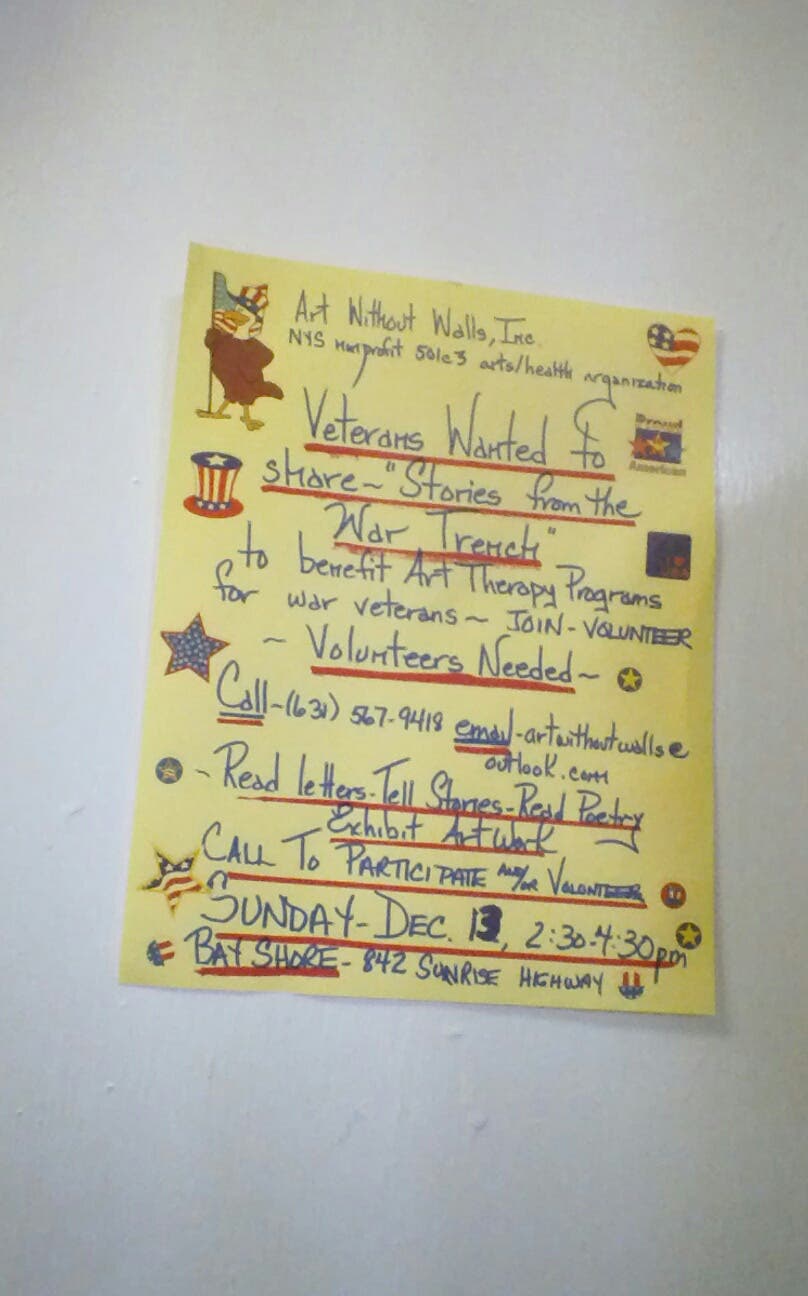 Art Without Walls, Inc.
NYS nonprofit 501c3 arts/health organization
Veterans Wanted to
share~"Stories from the
War Trench"
to benefit Art Therapy Programs
for war veterans ~ JOIN - VOLUNTEER
~ Volunteers Needed ~
Call-(631) 567-9418 email-artwithoutwalls@
outlook.com
~ Read letters-Tell Stories-Read Poetry
Exhibit Art Work
CALL TO PARTICIPATE and/or VOLUNTEER
SUNDAY-DEC. 13, 2:30-4:30pm
BAY SHORE - 842 SUNRISE HIGHWAY
Proud
American